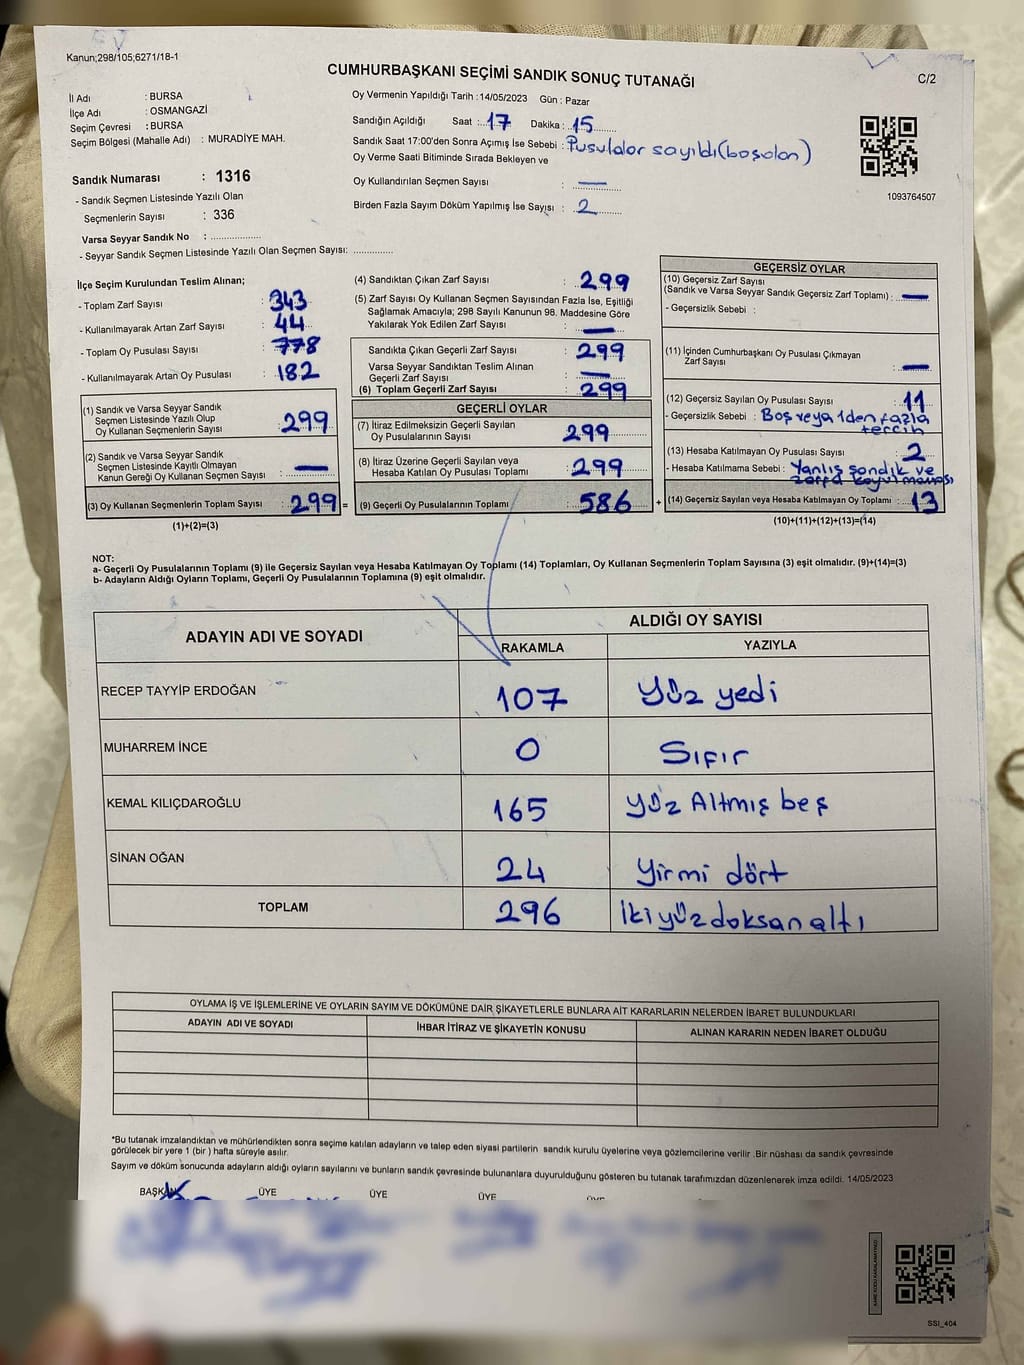 Kanun;298/105;6271/18-1
CUMHURBAŞKANI SEÇİMİ SANDIK SONUÇ TUTANAĞI
C/2
İl Adı : BURSA
İlçe Adı : OSMANGAZİ
Seçim Çevresi : BURSA
Seçim Bölgesi (Mahalle Adı) : MURADİYE MAH.
Sandık Numarası : 1316
- Sandık Seçmen Listesinde Yazılı Olan
Seçmenlerin Sayısı : 336
Varsa Seyyar Sandık No : ..................
- Seyyar Sandık Seçmen Listesinde Yazılı Olan Seçmen Sayısı: ..............
Oy Vermenin Yapıldığı Tarih :14/05/2023 Gün : Pazar
Sandığın Açıldığı Saat : 17 Dakika : 15
Sandık Saat 17:00'den Sonra Açımış İse Sebebi : Pusulalar sayıldı(boşolan)
Oy Verme Saati Bitiminde Sırada Bekleyen ve
Oy Kullandırılan Seçmen Sayısı : —
Birden Fazla Sayım Döküm Yapılmış İse Sayısı : 2
1093764507
İlçe Seçim Kurulundan Teslim Alınan;
- Toplam Zarf Sayısı : 343
- Kullanılmayarak Artan Zarf Sayısı : 44
- Toplam Oy Pusulası Sayısı : 778
- Kullanılmayarak Artan Oy Pusulası : 182
(1) Sandık ve Varsa Seyyar Sandık
Seçmen Listesinde Yazılı Olup
Oy Kullanan Seçmenlerin Sayısı : 299
(2) Varsa Seyyar Sandık ve Sandık
Seçmen Listesinde Kayıtlı Olmayan
Kanun Gereği Oy Kullanan Seçmen Sayısı : —
(3) Oy Kullanan Seçmenlerin Toplam Sayısı : 299 =
(1)+(2)=(3)
(4) Sandıktan Çıkan Zarf Sayısı : 299
(5) Zarf Sayısı Oy Kullanan Seçmen Sayısından Fazla İse, Eşitliği
Sağlamak Amacıyla; 298 Sayılı Kanunun 98. Maddesine Göre
Yakılarak Yok Edilen Zarf Sayısı : —
Sandıkta Çıkan Geçerli Zarf Sayısı : 299
Varsa Seyyar Sandıktan Teslim Alınan
Geçerli Zarf Sayısı : —
(6) Toplam Geçerli Zarf Sayısı : 299
GEÇERLİ OYLAR
(7) İtiraz Edilmeksizin Geçerli Sayılan
Oy Pusulalarının Sayısı : 299
(8) İtiraz Üzerine Geçerli Sayılan veya
Hesaba Katılan Oy Pusulası Toplamı : 299
(9) Geçerli Oy Pusulalarının Toplamı : 586 +
GEÇERSİZ OYLAR
(10) Geçersiz Zarf Sayısı
(Sandık ve Varsa Seyyar Sandık Geçersiz Zarf Toplamı) : —
- Geçersizlik Sebebi :
(11) İçinden Cumhurbaşkanı Oy Pusulası Çıkmayan
Zarf Sayısı : —
(12) Geçersiz Sayılan Oy Pusulası Sayısı : 11
- Geçersizlik Sebebi : Boş veya 1den fazla
tercih
(13) Hesaba Katılmayan Oy Pusulası Sayısı : 2
- Hesaba Katılmama Sebebi : Yanlış sandık ve
zarfa koyulmaması
(14) Geçersiz Sayılan veya Hesaba Katılmayan Oy Toplamı : 13
(10)+(11)+(12)+(13)=(14)
NOT:
a- Geçerli Oy Pusulalarının Toplamı (9) ile Geçersiz Sayılan veya Hesaba Katılmayan Oy Toplamı (14) Toplamları, Oy Kullanan Seçmenlerin Toplam Sayısına (3) eşit olmalıdır. (9)+(14)=(3)
b- Adayların Aldığı Oyların Toplamı, Geçerli Oy Pusulalarının Toplamına (9) eşit olmalıdır.
ADAYIN ADI VE SOYADI
ALDIĞI OY SAYISI
RAKAMLA YAZIYLA
RECEP TAYYİP ERDOĞAN 107 Yüz yedi
MUHARREM İNCE 0 Sıfır
KEMAL KILIÇDAROĞLU 165 Yüz Altmış beş
SİNAN OĞAN 24 Yirmi dört
TOPLAM 296 İkiyüzdoksanaltı
OYLAMA İŞ VE İŞLEMLERİNE VE OYLARIN SAYIM VE DÖKÜMÜNE DAİR ŞİKAYETLERLE BUNLARA AİT KARARLARIN NELERDEN İBARET BULUNDUKLARI
ADAYIN ADI VE SOYADI İHBAR İTİRAZ VE ŞİKAYETİN KONUSU ALINAN KARARIN NEDEN İBARET OLDUĞU
*Bu tutanak imzalandıktan ve mühürlendikten sonra seçime katılan adayların ve talep eden siyasi partilerin sandık kurulu üyelerine veya gözlemcilerine verilir .Bir nüshası da sandık çevresinde
görülecek bir yere 1 (bir ) hafta süreyle asılır.
Sayım ve döküm sonucunda adayların aldığı oyların sayılarını ve bunların sandık çevresinde bulunanlara duyurulduğunu gösteren bu tutanak tarafımızdan düzenlenerek imza edildi. 14/05/2023
BAŞKAN ÜYE ÜYE ÜYE
SSI_404